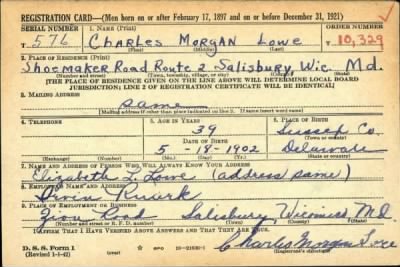 REGISTRATION CARD—(Men born on or after February 17, 1897 and on or before December 31, 1921)
SERIAL NUMBER 1. NAME (Print) ORDER NUMBER
T 576 CHARLES MORGAN LOWE 10,329
(First) (Middle) (Last)
2. PLACE OF RESIDENCE (Print)
Shoemaker Road Route 2 Salisbury Wic. Md.
(Number and street) (Town, township, village, or city) (County) (State)
[THE PLACE OF RESIDENCE GIVEN ON THE LINE ABOVE WILL DETERMINE LOCAL BOARD
JURISDICTION; LINE 2 OF REGISTRATION CERTIFICATE WILL BE IDENTICAL]
3. MAILING ADDRESS
same
[Mailing address if other than place indicated on line 2. If same insert word same]
4. TELEPHONE 5. AGE IN YEARS 6. PLACE OF BIRTH
39 Sussex Co.
DATE OF BIRTH (Town or county)
5 - 18 - 1902 Delaware
(Exchange) (Number) (Mo.) (Day) (Yr.) (State or country)
7. NAME AND ADDRESS OF PERSON WHO WILL ALWAYS KNOW YOUR ADDRESS
Elizabeth L. Lowe (address same)
8. EMPLOYER'S NAME AND ADDRESS
9. PLACE OF EMPLOYMENT OR BUSINESS
Zion Road Salisbury, Wicomico Md.
(Number and street or R. F. D. number) (Town) (County) (State)
I AFFIRM THAT I HAVE VERIFIED ABOVE ANSWERS AND THAT THEY ARE TRUE.
D. S. S. Form 1
(Revised 1-1-42)
Charles Morgan Lowe
(Registrant's signature)